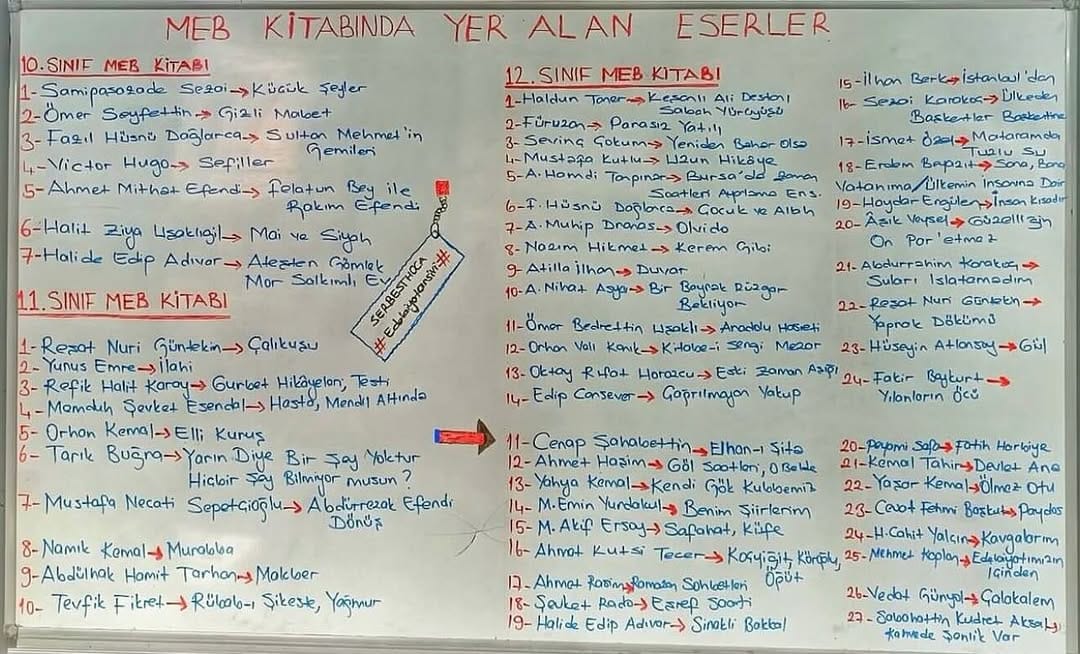 MEB KİTABINDA YER ALAN ESERLER
10. SINIF MEB KİTABI
1- Samipaşazade Sezai → Küçük Şeyler
2- Ömer Seyfettin → Gizli Mabet
3- Fazıl Hüsnü Dağlarca → Sultan Mehmet'in
Gemileri
4- Victor Hugo → Sefiller
5- Ahmet Mithat Efendi → Felatun Bey ile
Rakım Efendi
6- Halit Ziya Uşaklıgil → Mai ve Siyah
7- Halide Edip Adıvar → Ateşten Gömlek
Mor Salkımlı Ev
SERBESTHOCA
#Edebiyatansiri#
11. SINIF MEB KİTABI
1- Reşat Nuri Güntekin → Çalıkuşu
2- Yunus Emre → İlahi
3- Refik Halit Karay → Gurbet Hikayeleri, Testi
4- Memduh Şevket Esendal → Hasta, Mendil Altında
5- Orhan Kemal → Elli Kuruş
6- Tarık Buğra → Yarın Diye Bir Şey Yoktur
Hiçbir Şey Bilmiyor musun?
7- Mustafa Necati Sepetçioğlu → Abdürrezak Efendi
Dönüş
8- Namık Kemal → Murabba
9- Abdülhak Hamit Tarhan → Makber
10- Tevfik Fikret → Rübab-ı Şikeste, Yağmur
11- Cenap Şahabettin → Elhan-ı Şita
12- Ahmet Haşim → Göl Saatleri, O Belde
13- Yahya Kemal → Kendi Gök Kubbemiz
14- M. Emin Yurdakul → Benim Şiirlerim
15- M. Akif Ersoy → Safahat, Küfe
16- Ahmet Kutsi Tecer → Koçyiğit Köroğlu,
Öğüt
17- Ahmet Rasim → Ramazan Sohbetleri
18- Şevket Rado → Eşref Saati
19- Halide Edip Adıvar → Sinekli Bakkal
20- Peyami Safa → Fatih Harbiye
21- Kemal Tahir → Devlet Ana
22- Yaşar Kemal → Ölmez Otu
23- Cevat Fehmi Başkut → Paydos
24- H. Cahit Yalçın → Kavgalarım
25- Mehmet Kaplan → Edebiyatımızın
İçinden
26- Vedat Günyol → Çalakalem
27- Sabahattin Kudret Aksal,
Kahvede Şenlik Var
12. SINIF MEB KİTABI
1- Haldun Taner → Keşanlı Ali Destanı
Sabah Yürüyüşü
2- Füruzan → Parasız Yatılı
3- Sevinç Çokum → Yeniden Bahar Olsa
4- Mustafa Kutlu → Uzun Hikaye
5- A. Hamdi Tanpınar → Bursa'da Zaman
Saatleri Ayarlama Ens.
6- F. Hüsnü Dağlarca → Çocuk ve Allah
7- A. Muhip Dranas → Olvido
8- Nazım Hikmet → Kerem Gibi
9- Atilla İlhan → Duvar
10- A. Nihat Asya → Bir Bayrak Rüzgar
Bekliyor
11- Ömer Bedrettin Uşaklı → Anadolu Hasreti
12- Orhan Veli Kanık → Kitabe-i Sengi Mezar
13- Oktay Rıfat Horozcu → Eski Zaman Aşığı
14- Edip Cansever → Çağrılmayan Yakup
15- İlhan Berk → İstanbul'dan
16- Sezai Karakoç → Ülkeden
Başkentler Başkentine
17- İsmet Özel → Mataramda
Tuzlu Su
18- Erdem Beyazıt → Sana, Bana
Vatanıma/Ülkemin İnsanına Dair
19- Haydar Ergülen → İnsan Kısadır
20- Aşık Veysel → Güzelliğin
On Par'etmez
21- Abdurrahim Karakoç →
Suları Islatamadım
22- Reşat Nuri Güntekin →
Yaprak Dökümü
23- Hüseyin Atlansoy → Gül
24- Fakir Baykurt →
Yılanların Öcü